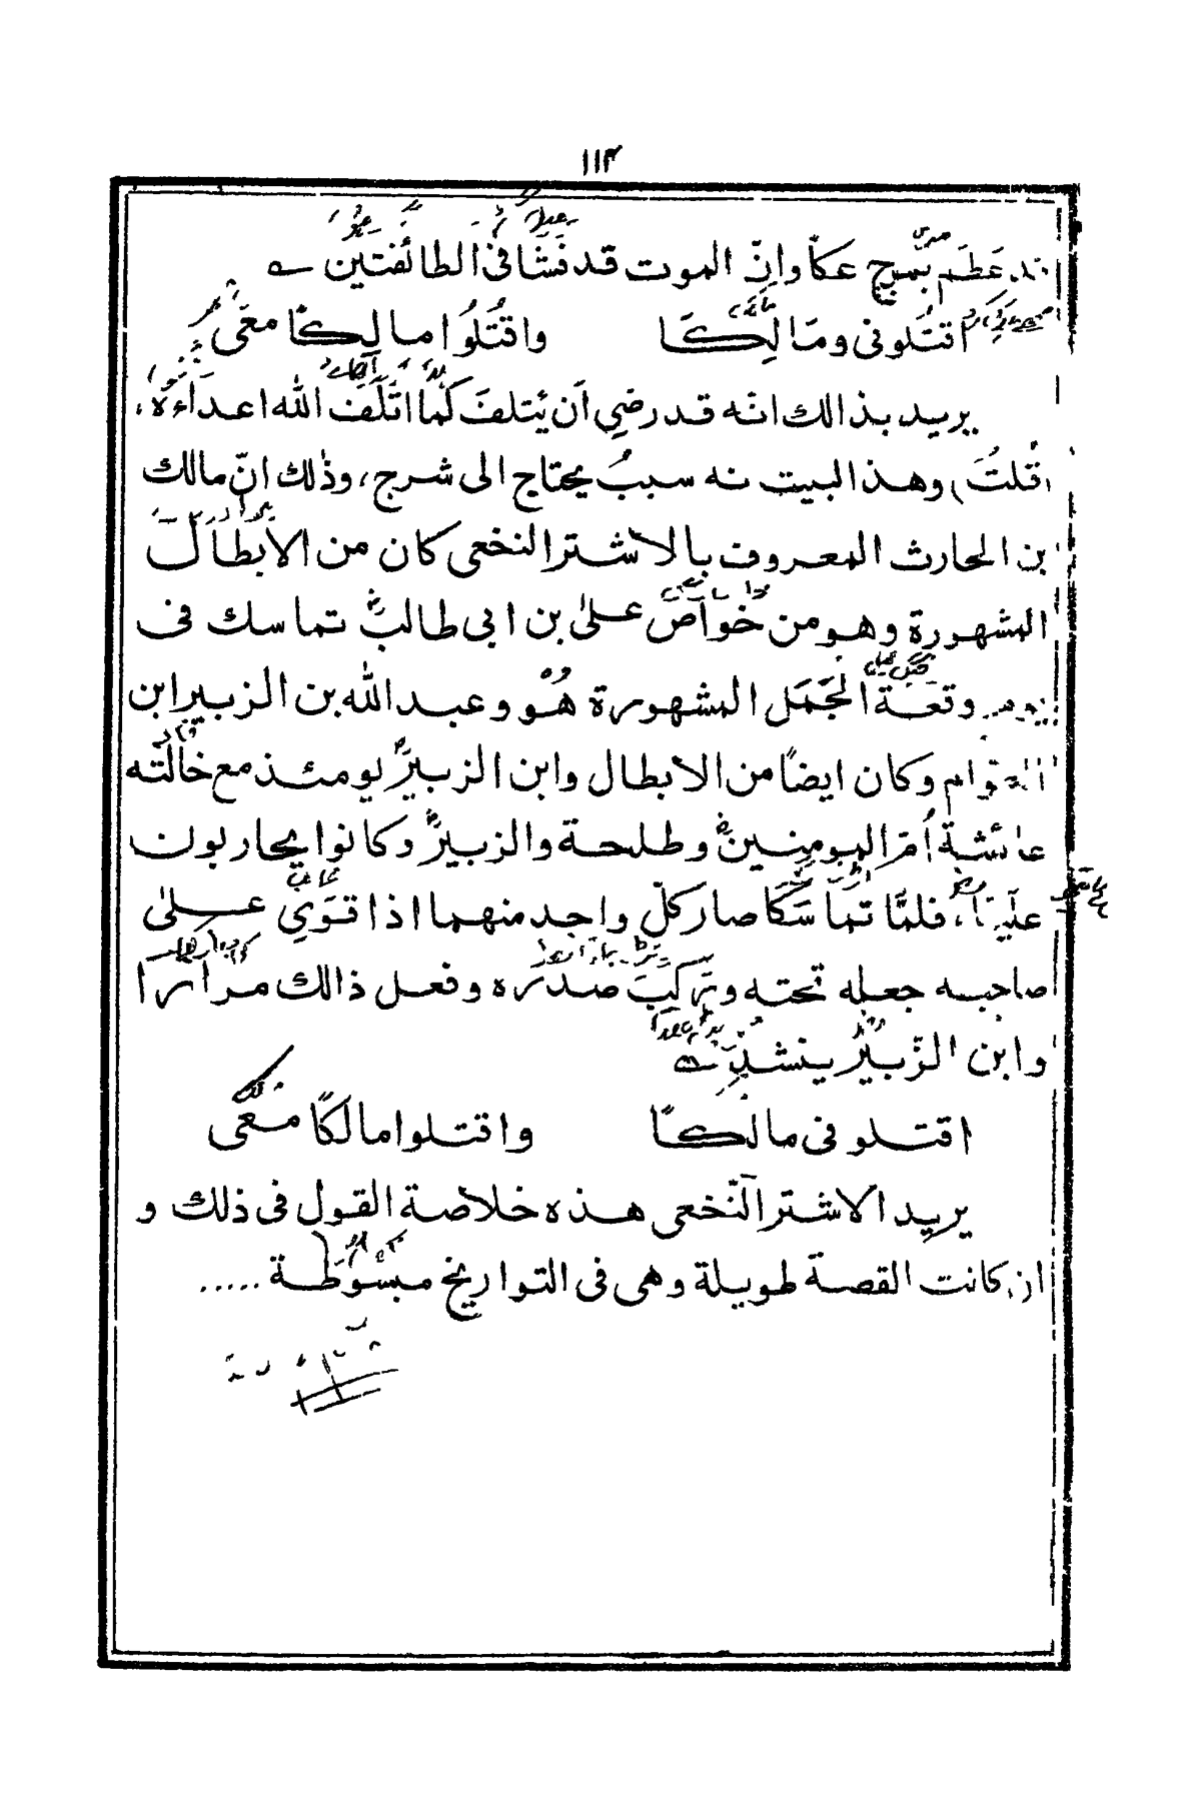 ١١٣
قد عَظَم بمرج عكّا وانّ الموت قد فَشَا فى الطائفتين
اقتُلونى ومَا لِكًا واقتُلُوا مالِكًا معى
يريد بذالك انّه قد رضِي اَن يُتلفَ كَمَّا اتَّلَفَ الله اعداءَهُ،
(قلتُ) وهذ البيت له سببٌ يحتاج الى شرح، وذٰلك انّ مالك
بن الحارث المعروف بالاشتر النخعى كان من الابطَال
المشهورة وهو من خَواصّ علىٰ بن ابى طالبؓ تماسك فى
يوم وقعَة الجَمَل المشهورة هُو وعبد الله بن الزبير ابن
العوام وكان ايضًا من الابطال وابن الزبيرؓ يومئذ مع خالته
عائشة اُمّ المومنينؓ وطلحة والزبيرؓ وكانوا يحاربون
عليًا، فلمَّا تمَاسَكَا صار كلّ واحد منهما اذا قَوِي علىٰ
صاحبه جعله تحته وتركيبَ صدرَه وفعل ذالك مرارًا
وابن الزّبيرؓ ينشد
اقتلونى مالكًا واقتلوا مالكًا معى
يريد الاشتر النّخعى هذه خلاصة القول فى ذلك و
ان كانت القصة طويلة وهى فى التواريخ مبسُوطَة .....